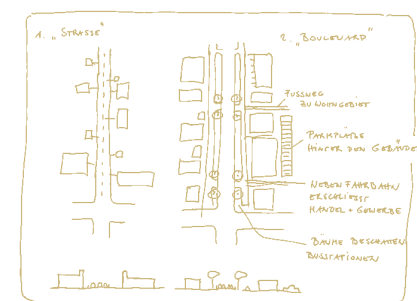 1. „STRASSE"
2. „BOULEVARD"
FUSSWEG
ZU WOHNGEBIET
PARKPLÄTZE
HINTER DEN GEBÄUDE
NEBEN FAHRBAHN
ERSCHLIESST
HANDEL + GEWERBE
BÄUME BESCHATTEN
BUSSTATIONEN